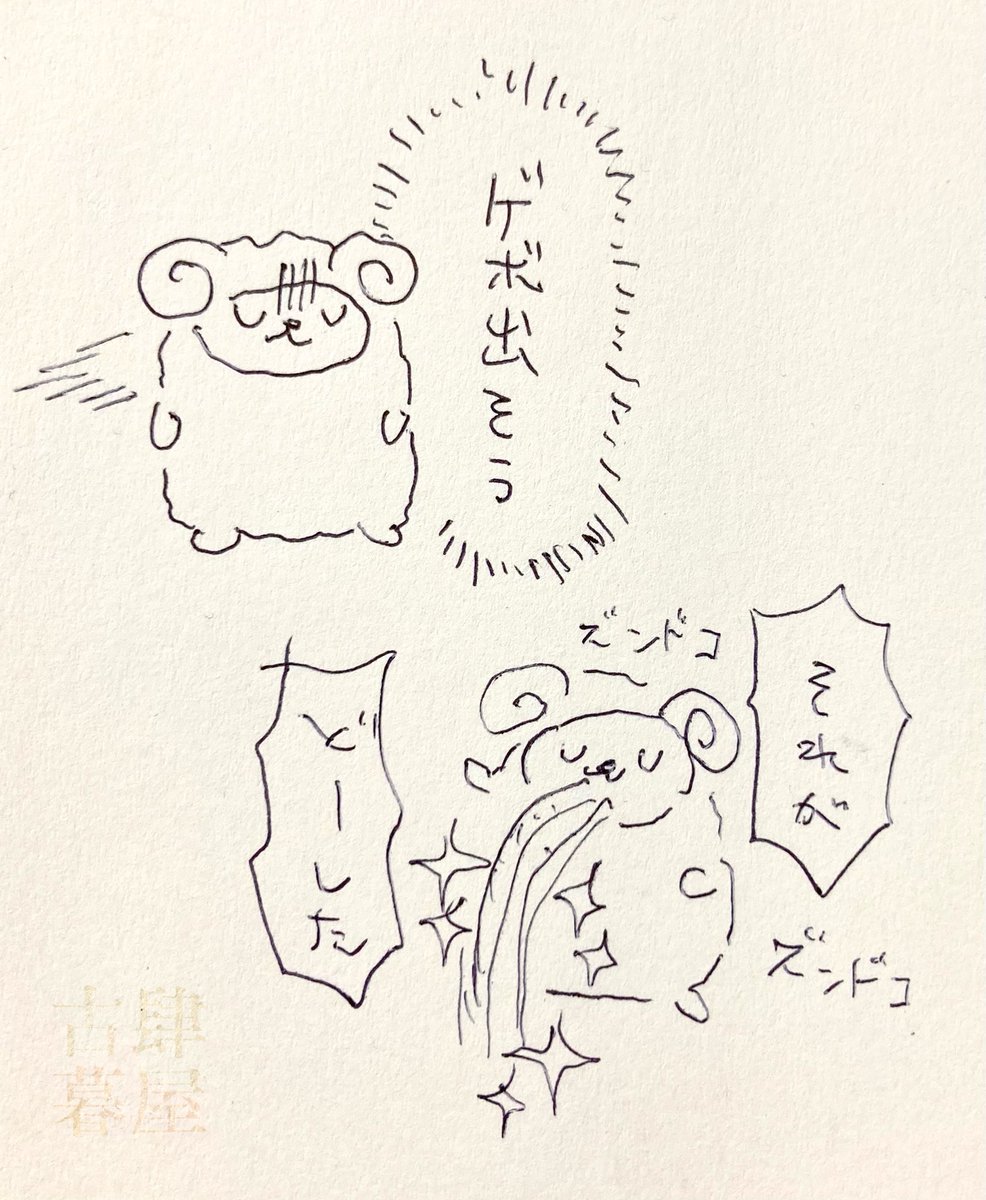 ゲボ出そう
ズンドコ
それが
どーした
ズンドコ
古
暮屋